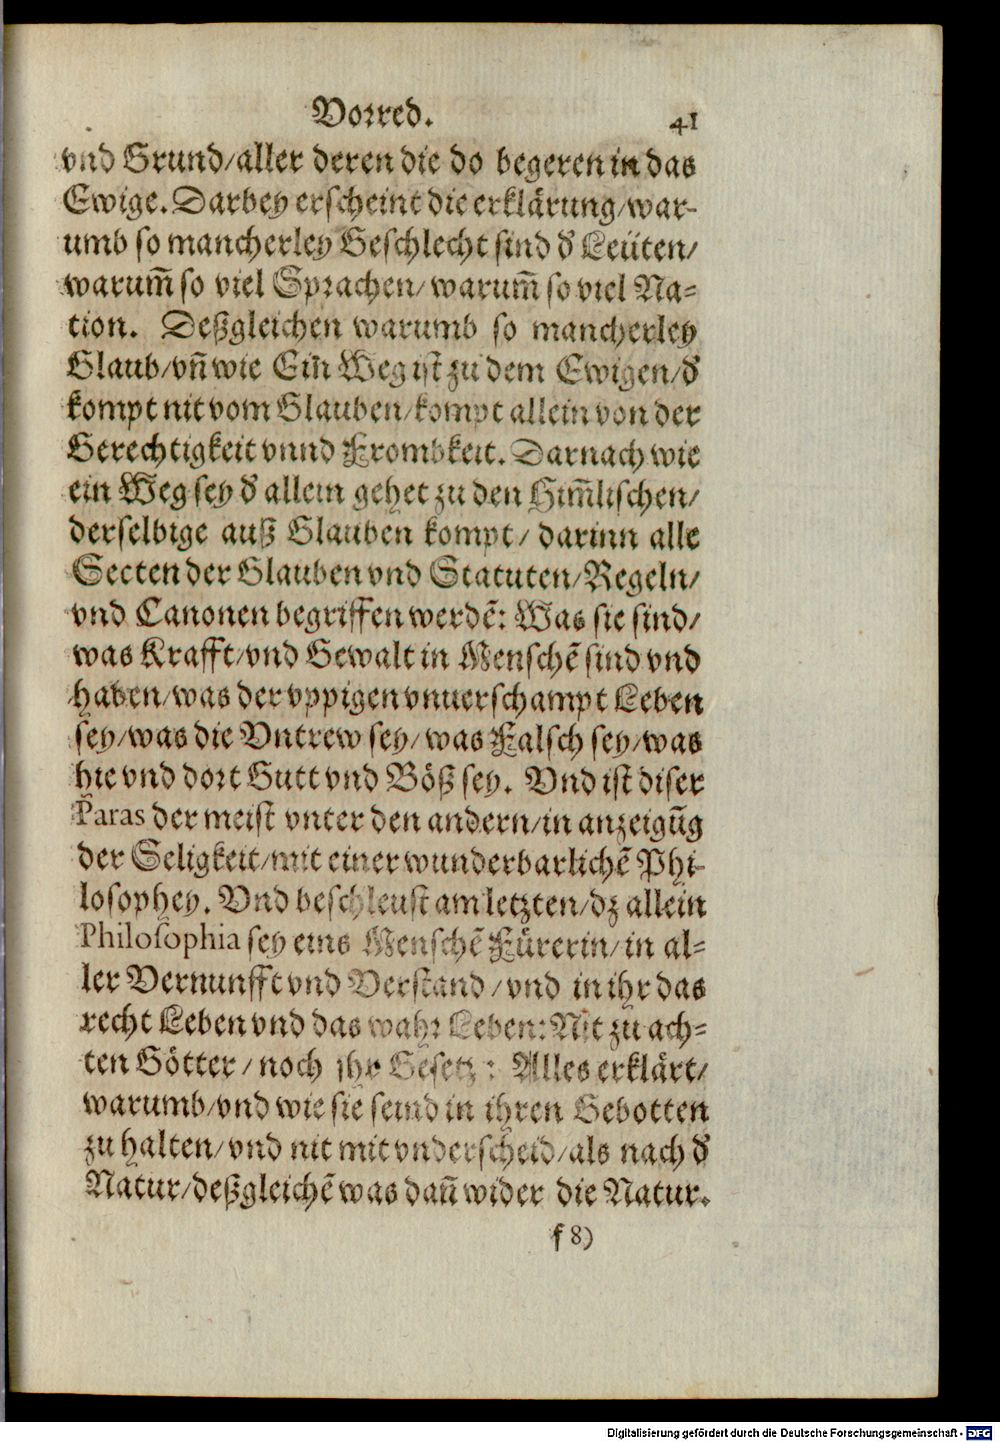 Vorred. 41
vnd Grund/aller deren die do begeren in das
Ewige. Darbey erscheint die erklärung/war-
umb so mancherley Geschlecht sind d̕ Leüten/
warum̃ so viel Sprachen/warum̃ so viel Na-
tion. Deßgleichen warumb so mancherley
Glaub/vñ wie Ein Weg ist zu dem Ewigen/d̕
kompt nit vom Glauben/kompt allein von der
Gerechtigkeit vnnd Frombkeit. Darnach wie
ein Weg sey d̕ allein gehet zu den Him̃lischen/
derselbige auß Glauben kompt/darinn alle
Secten der Glauben vnd Statuten/Regeln/
vnd Canonen begriffen werdẽ: Was sie sind/
was Krafft/vnd Gewalt in Menschẽ sind vnd
haben/was der vppigen vnuerschampt Leben
sey/was die Vntrew sey/was Falsch sey/was
hie vnd dort Gutt vnd Böß sey. Vnd ist diser
Paras der meist vnter den andern/in anzeigũg
der Seligkeit/mit einer wunderbarlichẽ Phi-
losophey. Vnd beschleust am letzten/dz allein
Philosophia sey eins Menschẽ Fürerin/in al-
ler Vernunfft vnd Verstand/vnd in ihr das
recht Leben vnd das wahr Leben: Nit zu ach-
ten Götter/noch ihr Gesetz: Alles erklärt/
warumb/vnd wie sie seind in ihren Gebotten
zu halten/vnd nit mit vnderscheid/als nach d̕
Natur/deßgleichẽ was dañ wider die Natur.
f 8)
Digitalisierung gefördert durch die Deutsche Forschungsgemeinschaft - DFG